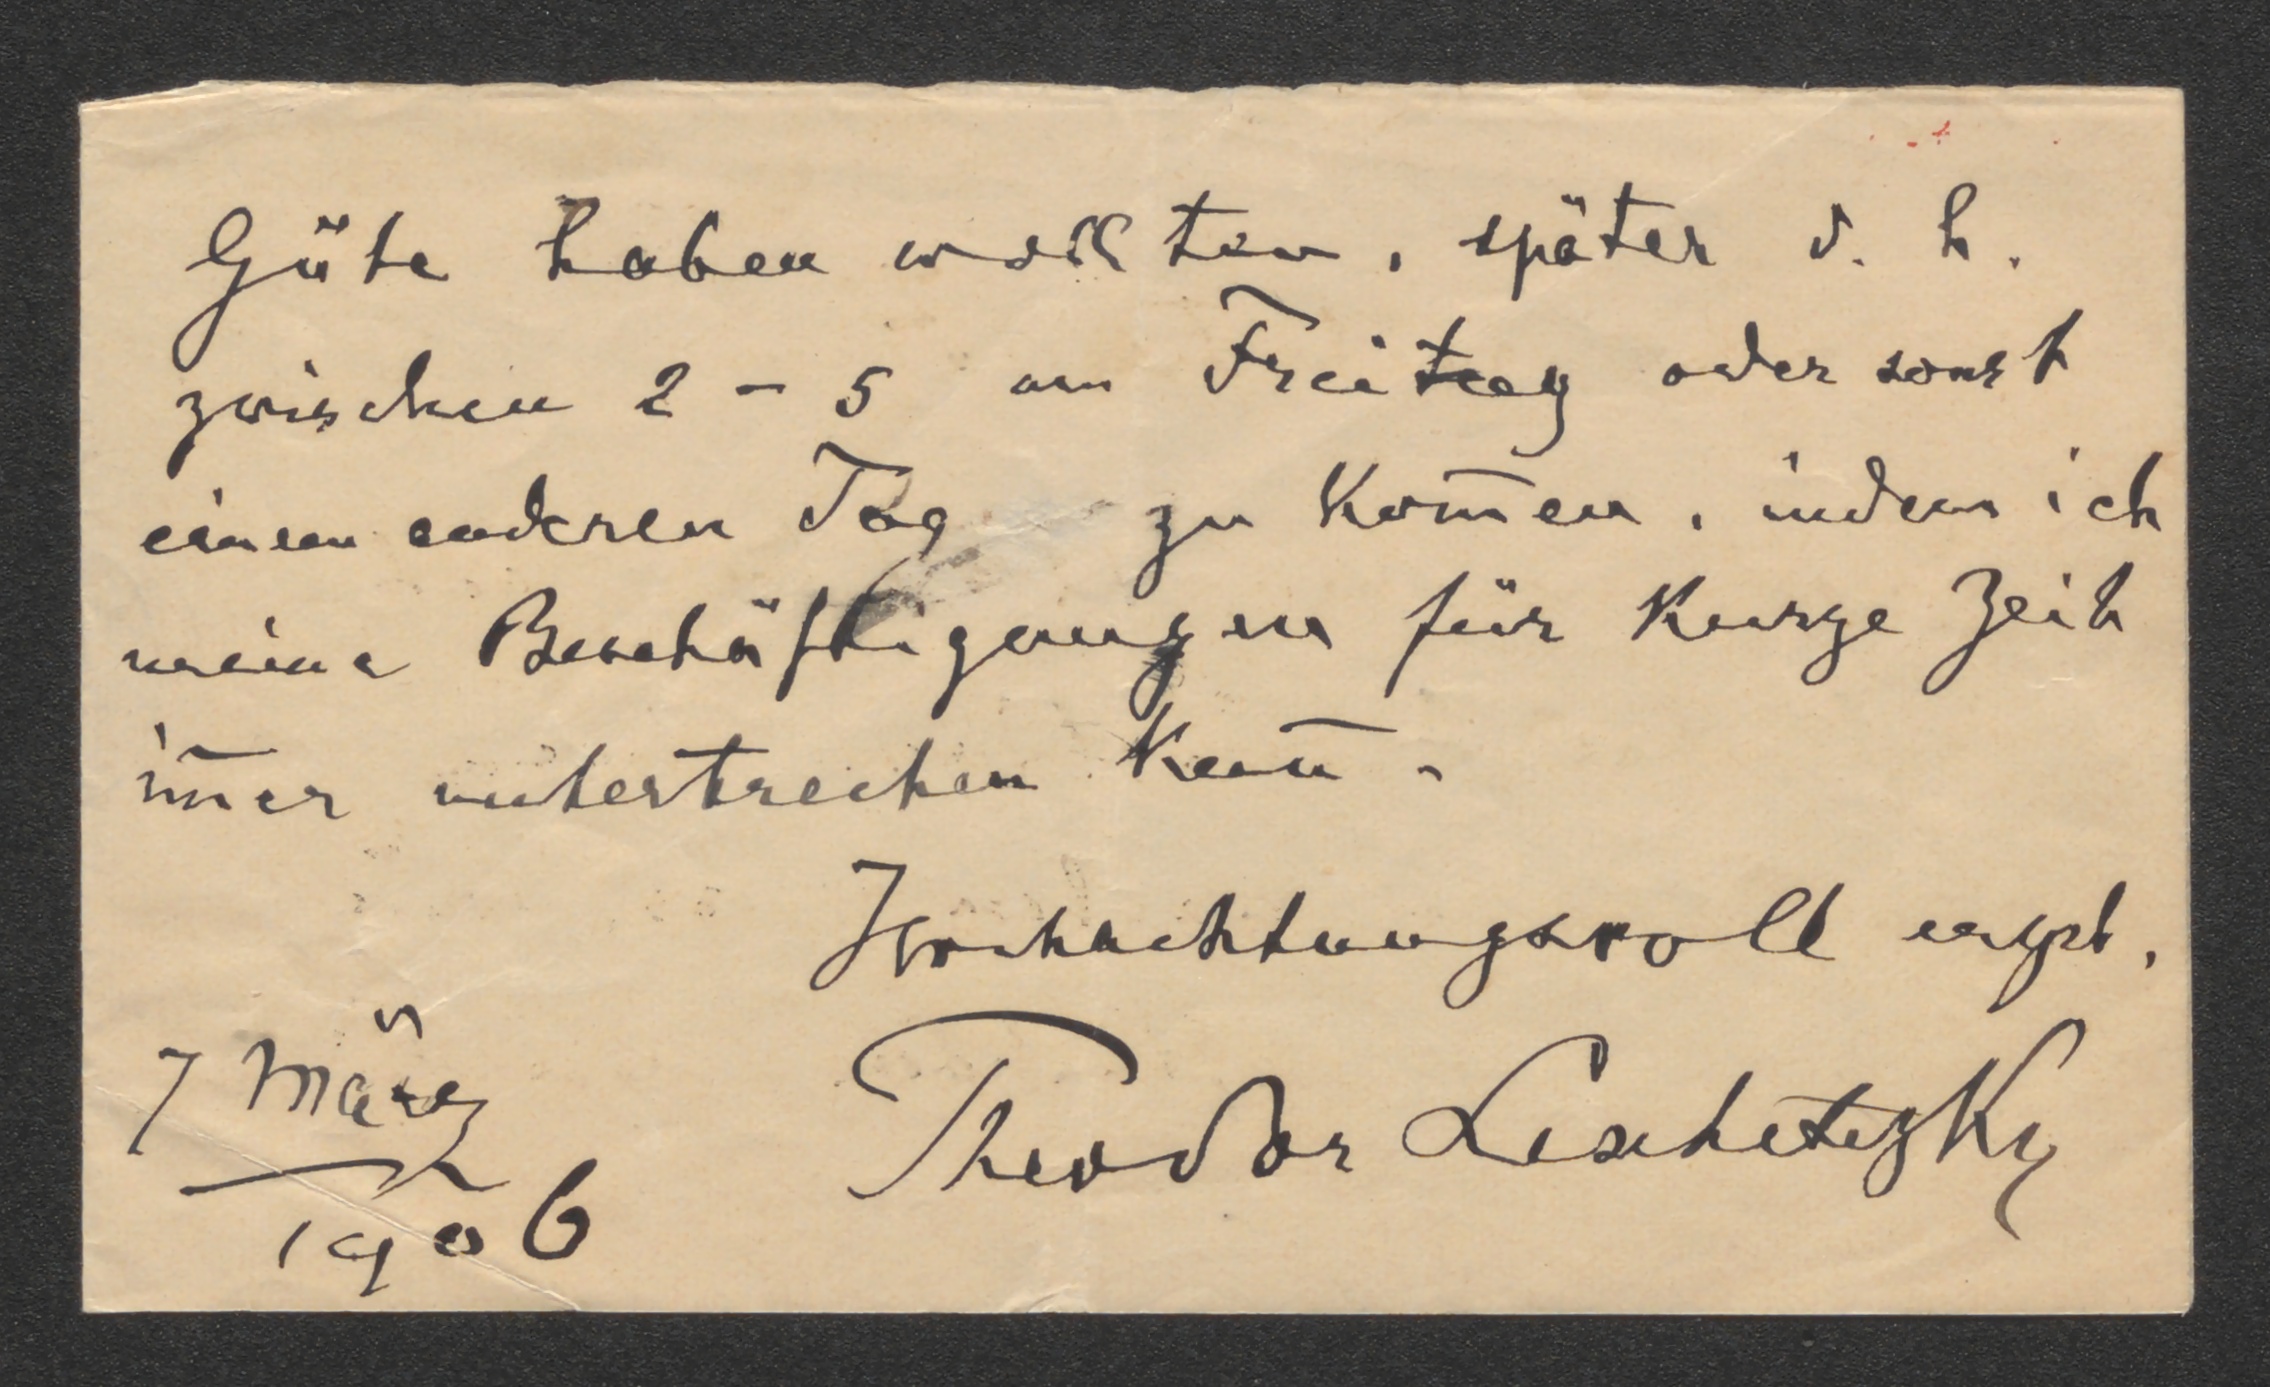 Güte haben wollten, später d. h.
zwischen 2 – 5 am Freitag oder sonst
einen anderen Tag zu kom̅en, indem ich
meine Beschäftigungen für kurze Zeit
im̅er unterbrechen kan̅.
Hochachtungsvoll ergbst.
7 März
Theodor Leschetizky
1906